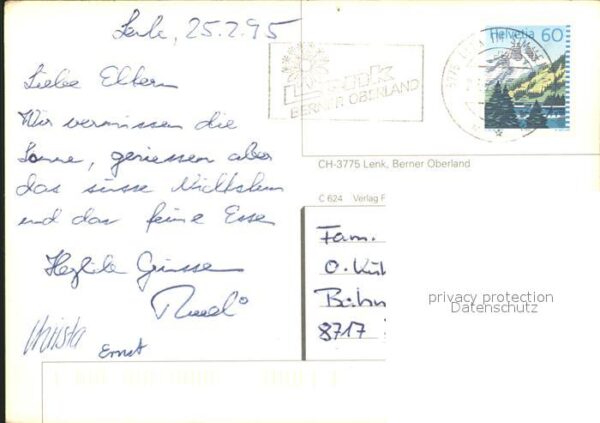 Lenk, 25.2.95
Liebe Eltern
Wir vermissen die
Sonne, geniessen aber
das süsse Nichtstun
und das feine Essen
Herzliche Grüsse
Ruedi
Christa
Ernst
Lenk
BERNER OBERLAND
Helvetia 60
CH-3775 Lenk, Berner Oberland
C 624 Verlag F
Fam.
O. Küh
Bahn
8717
privacy protection
Datenschutz